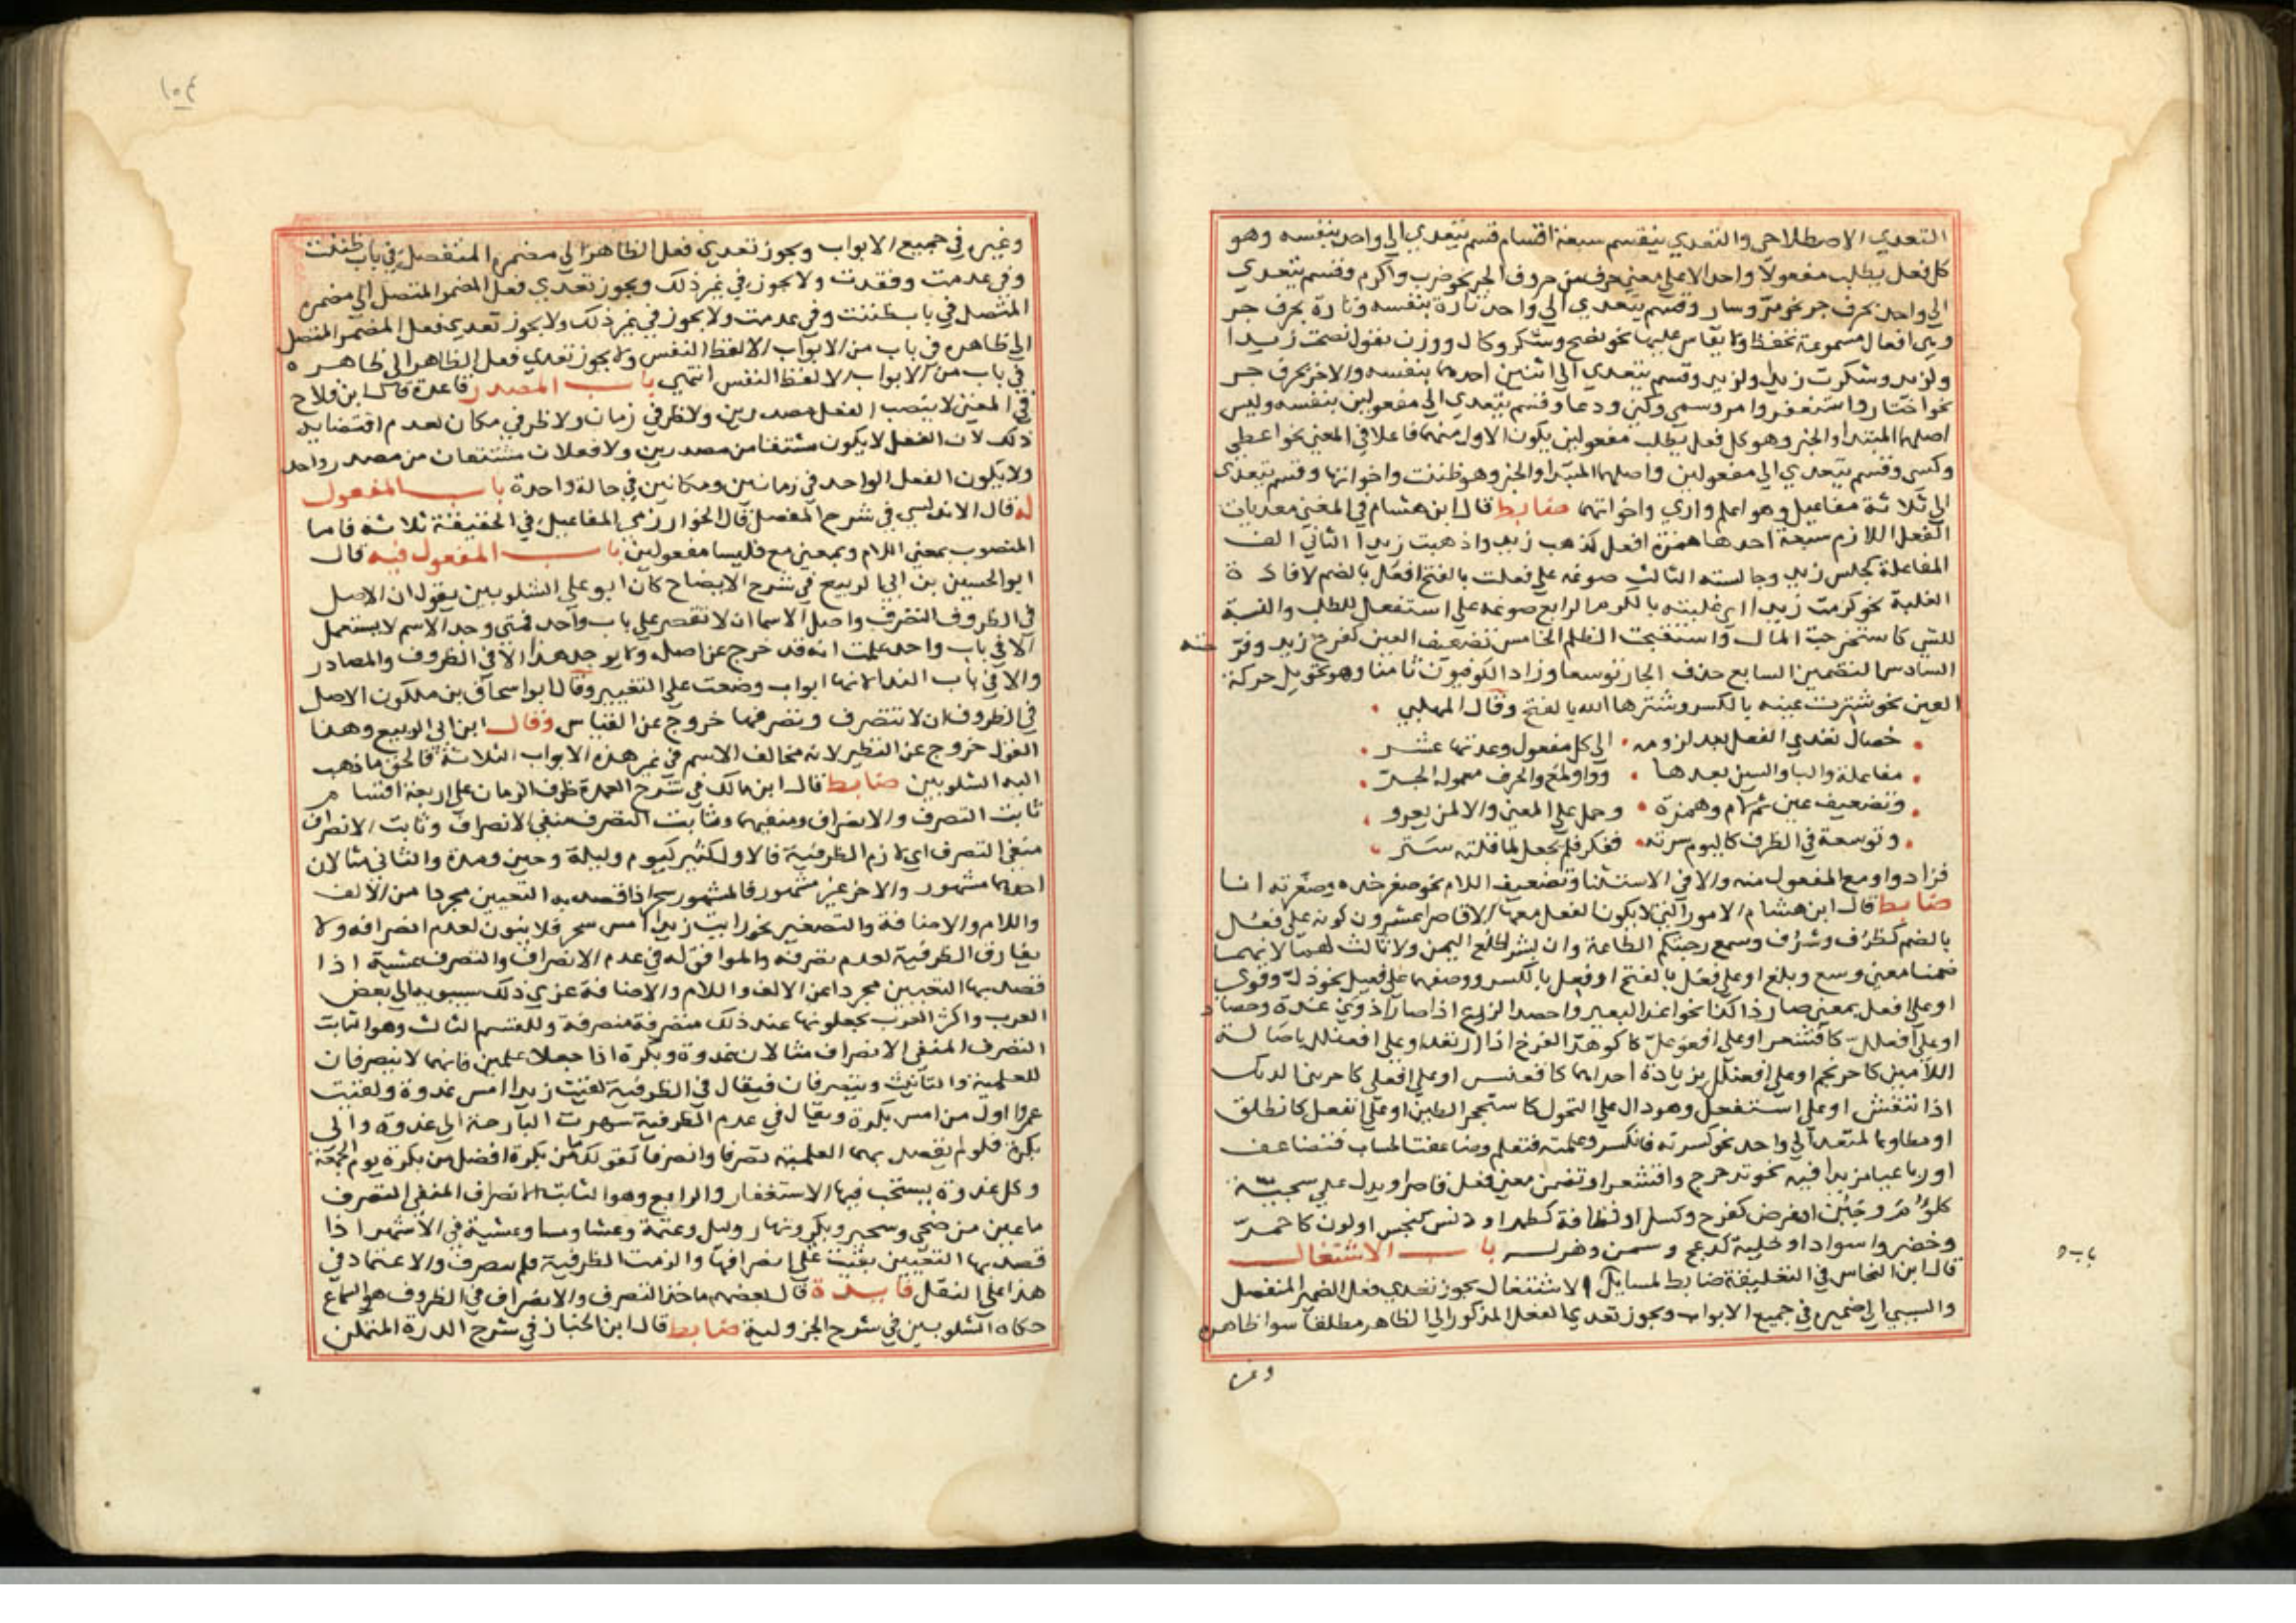 التعدي الاصطلاحي والتعدي ينقسم سبعة اقسام قسم يتعدي الي واحد بنفسه وهو
كل فعل يطلب مفعولا واحدا لا علي معني حرف من حروف الجر نحو ضرب واكرم وقسم يتعدي
الي واحد بحرف جر نحو مر وسار وقسم يتعدي الي واحد تارة بنفسه وتارة بحرف جر
وهي افعال مسموعة تحفظ ولا يقاس عليها نحو نصح وشكر وكال ووزن تقول نصحت زيدا
ولزيد وشكرت زيدا ولزيد وقسم يتعدي الي اثنين احدهما بنفسه والاخر بحرف جر
نحو اختار واستغفر وامر وسمي وكني ودعا وقسم يتعدي الي مفعولين بنفسه وليس
اصلهما المبتدا والخبر وهو كل فعل يطلب مفعولين يكون الاول منهما فاعلا في المعني نحو اعطي
وكسي وقسم يتعدي الي مفعولين واصلهما المبتدا والخبر وهو ظننت واخواتها وقسم يتعدي
الي ثلاثة مفاعيل وهو اعلم واري واخواتهما ضابط قال ابن هشام في المغني معديات
الفعل اللازم سبعة احدها همزة افعل كذهب زيد واذهبت زيدا الثاني الف
المفاعلة كجلس زيد وجالسته الثالث صوغه علي فعلت بالفتح افعل بالضم لافادة
الغلبة نحو كرمت زيدا اي غلبته بالكرم الرابع صوغه علي استفعل للطلب والنسبة
للشي كاستخرجت المال واستقبحت الظلم الخامس تضعيف العين كفرح زيد وفر حته
السادس التضمين السابع حذف الجار توسعا وزاد الكوفيون ثامنا وهو تحويل حركة
العين نحو شترت عينه بالكسر وشترها الله بالفتح وقال المهلبي
خصال تعدي الفعل بعد لزومه الي كل مفعول وعدتها عشر
مفاعلة والبا والسين بعدها وواو لمع والحرف معموله الجر
وتضعيف عين ثم لام وهمزة وحمل علي المعني والا لمن يعرو
وتوسعة في الظرف كاليوم سرته ففكر فلم يجعل لما قلته ستر
فزاد واو مع المفعول منه والا في الاستثنا وتضعيف اللام نحو صعر خده وصعرته انا
ضابط قال ابن هشام الامور التي لا يكون الفعل معها الا قاصرا عشرون كونه علي فعل
بالضم كظرف وشرف وسمع رحبتكم الطاعة وان بشرا طلع اليمن ولا ثالث لهما لانهما
ضمنا معني وسع وبلغ او علي فعل بالفتح او فعل بالكسر ووصفهما علي فعيل نحو ذل وقوي
او علي افعل بمعني صار ذا كذا نحو اغد البعير واحصد الزرع اذا صارا ذوي غدة وحصاد
او علي افعلل كاقشعر او علي افوعل كاكوهد الفرخ اذا ارتعد او علي افعنلل باصالة
اللامين كاحرنجم او علي افعنلل بزيادة احداهما كاقعنسس او علي افعنلي كاحربني الديك
اذا انتفش او علي استفعل وهو دال علي التحول كاستحجر الطين او علي انفعل كانطلق
او مطاوعا لمتعد الي واحد نحو كسرته فانكسر وعلمته فتعلم وضاعفت الحساب فتضاعف
او رباعيا مزيدا فيه نحو تدحرج واقشعر او تضمن معني فعل قاصر او يدل علي سجية
كلؤم وجبن او عرض كفرح وكسل او نظافة كطهر او دنس كنجس او لون كاحمر
وخضر واسواد او حلية كدعج وسمن وهزل باب الاشتغال
قال ابن النحاس في التعليقة ضابط لمسايل الاشتغال يجوز تعدي فعل الضمير المنفصل
والسببي الي ضميره في جميع الابواب ويجوز تعدي الفعل المذكور الي الظاهر مطلقا سوا ظاهره
وغيره
باب
١٠٤
وغيره في جميع الابواب ويجوز تعدي فعل الظاهر الي مضمره المنفصل في باب ظننت
وفي عدمت وفقدت ولا يجوز في غير ذلك ويجوز تعدي فعل المضمر المتصل الي مضمره
المتصل في باب ظننت وفي عدمت ولا يجوز في غير ذلك ولا يجوز تعدي فعل المضمر المتصل
الي ظاهره في باب من الابواب الا لفظ النفس ولا يجوز تعدي فعل الظاهر الي ظاهره
في باب من الابواب الا لفظ النفس انتهي باب المصدر قاعدة قال ابن فلاح
في المغني لا ينصب الفعل مصدرين ولا ظرفي زمان ولا ظرفي مكان لعدم اقتضايه
ذلك لان الفعل لا يكون مشتقا من مصدرين ولا فعلان مشتقان من مصدر واحد
ولا يكون الفعل الواحد في زمانين ومكانين في حالة واحدة باب المفعول
له قال الاندلسي في شرح المفصل قال الخوارزمي المفاعيل في الحقيقة ثلاثة فاما
المنصوب بمعني اللام وبمعني مع فليسا مفعولين باب المفعول فيه قال
ابو الحسين بن ابي الربيع في شرح الايضاح كان ابو علي الشلوبين يقول ان الاصل
في الظروف التصرف واصل الاسما ان لا تقصر علي باب واحد فمتي وجد الاسم لا يستعمل
الا في باب واحد علمت انه قد خرج عن اصله ولا يوجد هذا الا في الظروف والمصادر
والا في باب الندا لانها ابواب وضعت علي التغيير وقال ابو اسحاق بن ملكون الاصل
في الظروف ان لا تتصرف وتصرفها خروج عن القياس وقال ابن ابي الربيع وهذا
القول خروج عن النظير لانه مخالف الاسم في غير هذه الابواب الثلاثة فالحق ما ذهب
اليه الشلوبين ضابط قال ابن مالك في شرح العمدة ظرف الزمان علي اربعة اقسام
ثابت التصرف والانصراف ومنفيهما وثابت التصرف منفي الانصراف وثابت الانصراف
منفي التصرف اي لازم الظرفية فالاول كثير كيوم وليلة وحين ومدة والثاني مثالان
احدهما مشهور والاخر غير مشهور فالمشهور سحر اذا قصد به التعيين مجردا من الالف
واللام والاضافة والتصغير نحو رايت زيدا امس سحر فلا ينون لعدم انصرافه ولا
يفارق الظرفية لعدم تصرفه والموافق له في عدم الانصراف والتصرف عشية اذا
قصد بها التعيين مجردا عن الالف واللام والاضافة عزي ذلك سيبويه الي بعض
العرب واكثر العرب يجعلونها عند ذلك منصرفة متصرفة وللقسم الثالث وهو الثابت
التصرف المنفي الانصراف مثالان غدوة وبكرة اذا جعلا علمين فانهما لا ينصرفان
للعلمية والتانيث ويتصرفان فيقال في الظرفية لقيت زيدا امس غدوة ولقيت
عمرا اول من امس بكرة ويقال في عدم الظرفية سهرت البارحة الي غدوة والي
بكرة فلو لم يقصد بهما العلمية تصرفا وانصرفا كقولك ما من بكرة افضل من بكرة يوم الجمعة
وكل غدوة يستحب فيها الاستغفار والرابع وهو الثابت الانصراف المنفي التصرف
ما عين من ضحي وسحير وبكر ونهار وليل وعتمة وعشا ومسا وعشية في الاشهر اذا
قصد بها التعيين بقيت علي انصرافها والزمت الظرفية فلم تتصرف والاعتماد في
هذا علي النقل فايدة قال بعضهم ماخذ التصرف والانصراف في الظروف هو السماع
حكاه الشلوبين في شرح الجزولية ضابط قال ابن الخباز في شرح الدرة المتمكن